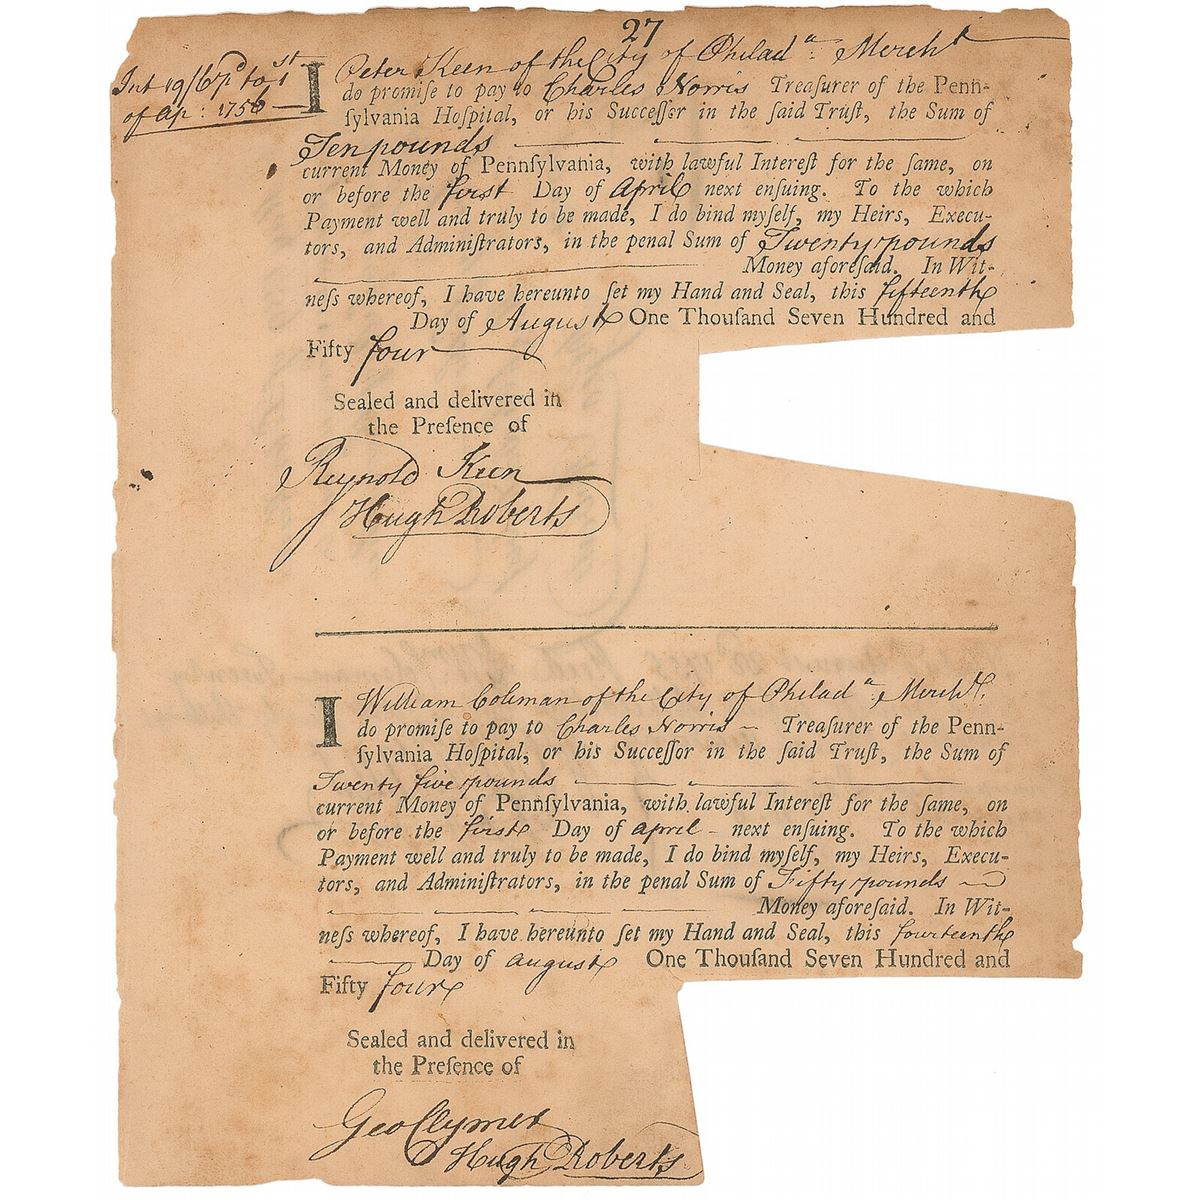 27
Int 19/6 pd to 1st
of Ap: 1756
I Peter Keen of the City of Philada. Mercht
do promiſe to pay to Charles Norris Treaſurer of the Penn-
ſylvania Hoſpital, or his Succeſſor in the ſaid Truſt, the Sum of
Ten pounds
current Money of Pennſylvania, with lawful Intereſt for the ſame, on
or before the first Day of April next enſuing. To the which
Payment well and truly to be made, I do bind myſelf, my Heirs, Execu-
tors, and Adminiſtrators, in the penal Sum of Twenty pounds
Money aforeſaid. In Wit-
neſs whereof, I have hereunto ſet my Hand and Seal, this fifteenth
Day of August One Thouſand Seven Hundred and
Fifty four
Sealed and delivered in
the Preſence of
Reynold Keen
Hugh Roberts
I William Coleman of the City of Philada. Mercht.
do promiſe to pay to Charles Norris Treaſurer of the Penn-
ſylvania Hoſpital, or his Succeſſor in the ſaid Truſt, the Sum of
Twenty five pounds
current Money of Pennſylvania, with lawful Intereſt for the ſame, on
or before the first Day of april next enſuing. To the which
Payment well and truly to be made, I do bind myſelf, my Heirs, Execu-
tors, and Adminiſtrators, in the penal Sum of Fifty pounds
Money aforeſaid. In Wit-
neſs whereof, I have hereunto ſet my Hand and Seal, this fourteenth
Day of august One Thouſand Seven Hundred and
Fifty four
Sealed and delivered in
the Preſence of
Geo Clymer
Hugh Roberts